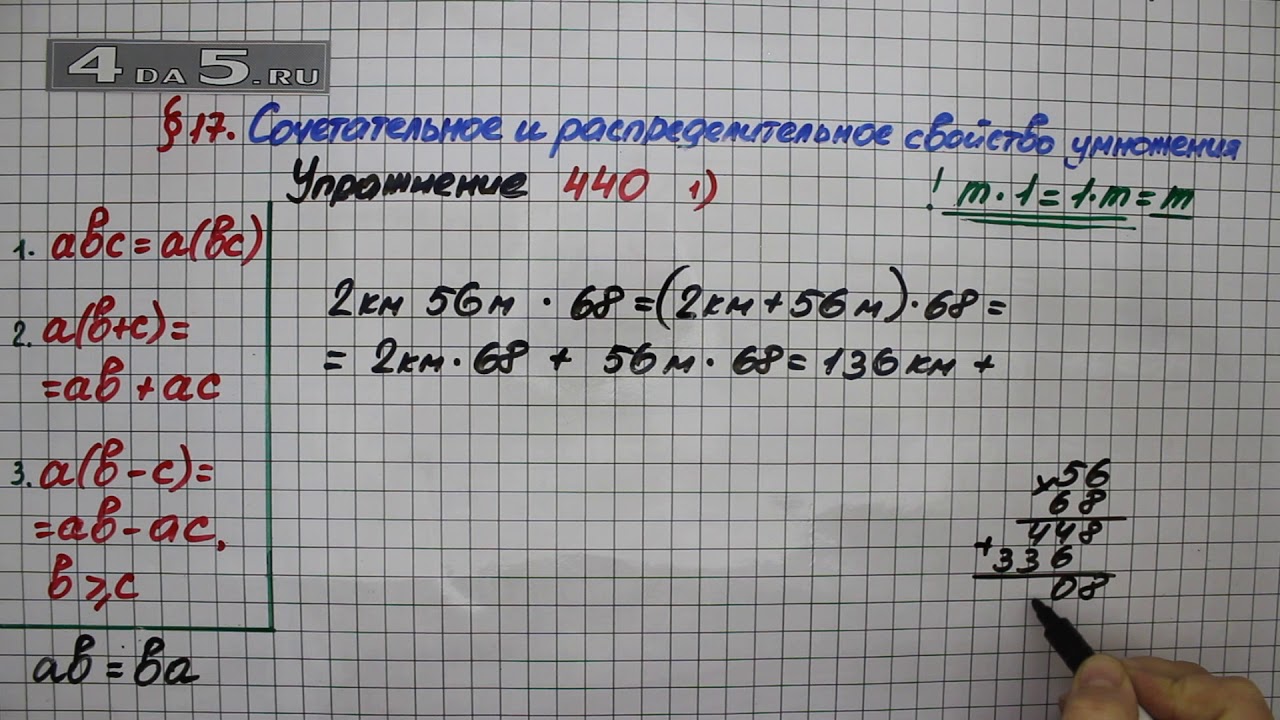 4DA5.RU
§17. Сочетательное и распределительное свойство умножения
Упражнение 440 1)
! m·1=1·m=m
1. авс=а(вс)
2. а(в+с)=
=ав+ас
3. а(в-с)=
=ав-ас,
в⩾с
ав=ва
2км 56м · 68=(2км+56м)·68=
= 2км·68 + 56м·68=136км+
×56
68
448
+336
08